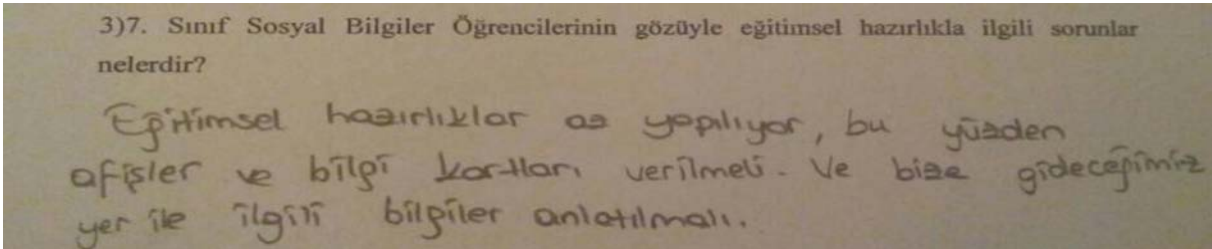 3)7. Sınıf Sosyal Bilgiler Öğrencilerinin gözüyle eğitimsel hazırlıkla ilgili sorunlar
nelerdir?
Eğitimsel hazırlıklar az yapılıyor, bu yüzden
afişler ve bilgi kartları verilmeli. Ve bize gideceğimiz
yer ile ilgili bilgiler anlatılmalı.